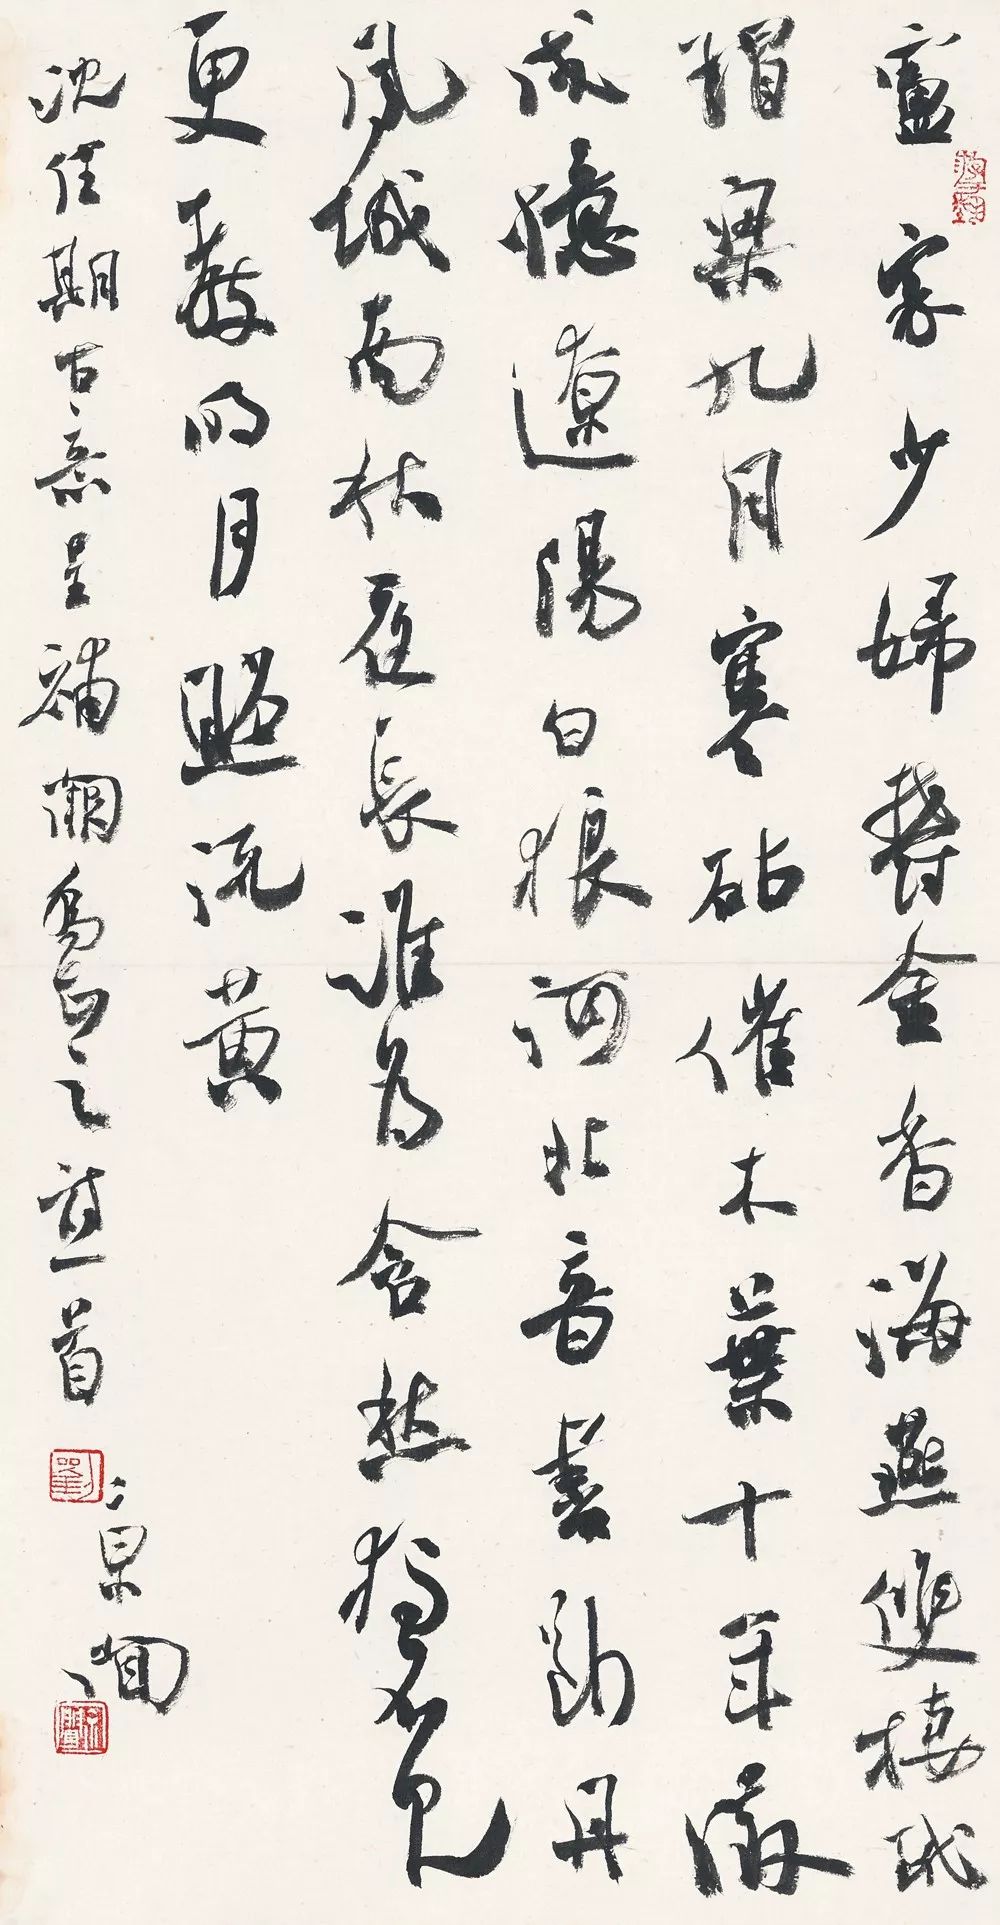 盧家少婦鬱金香海燕雙棲玳
瑁梁九月寒砧催木葉十年徵
戍憶遼陽白狼河北音書斷丹
鳳城南秋夜長誰為含愁獨不見
更教明月照流黃
沈佺期古意呈補闕喬知之首
劉